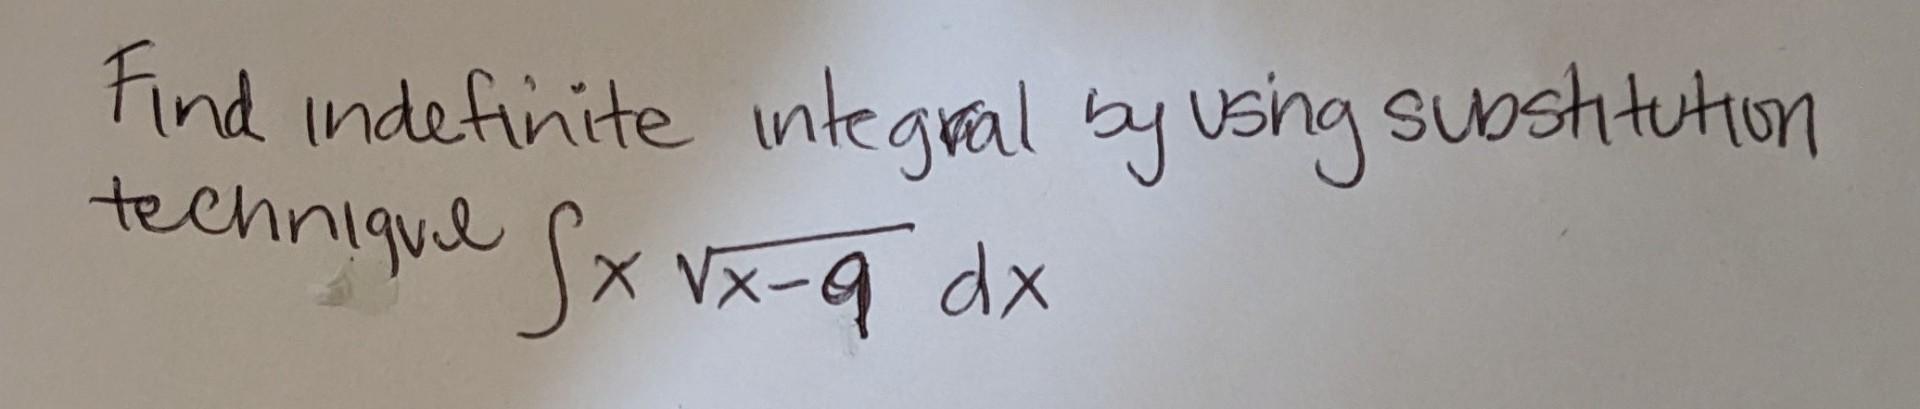 Find indefinite integral by using substitution
technique ∫x √x-9 dx